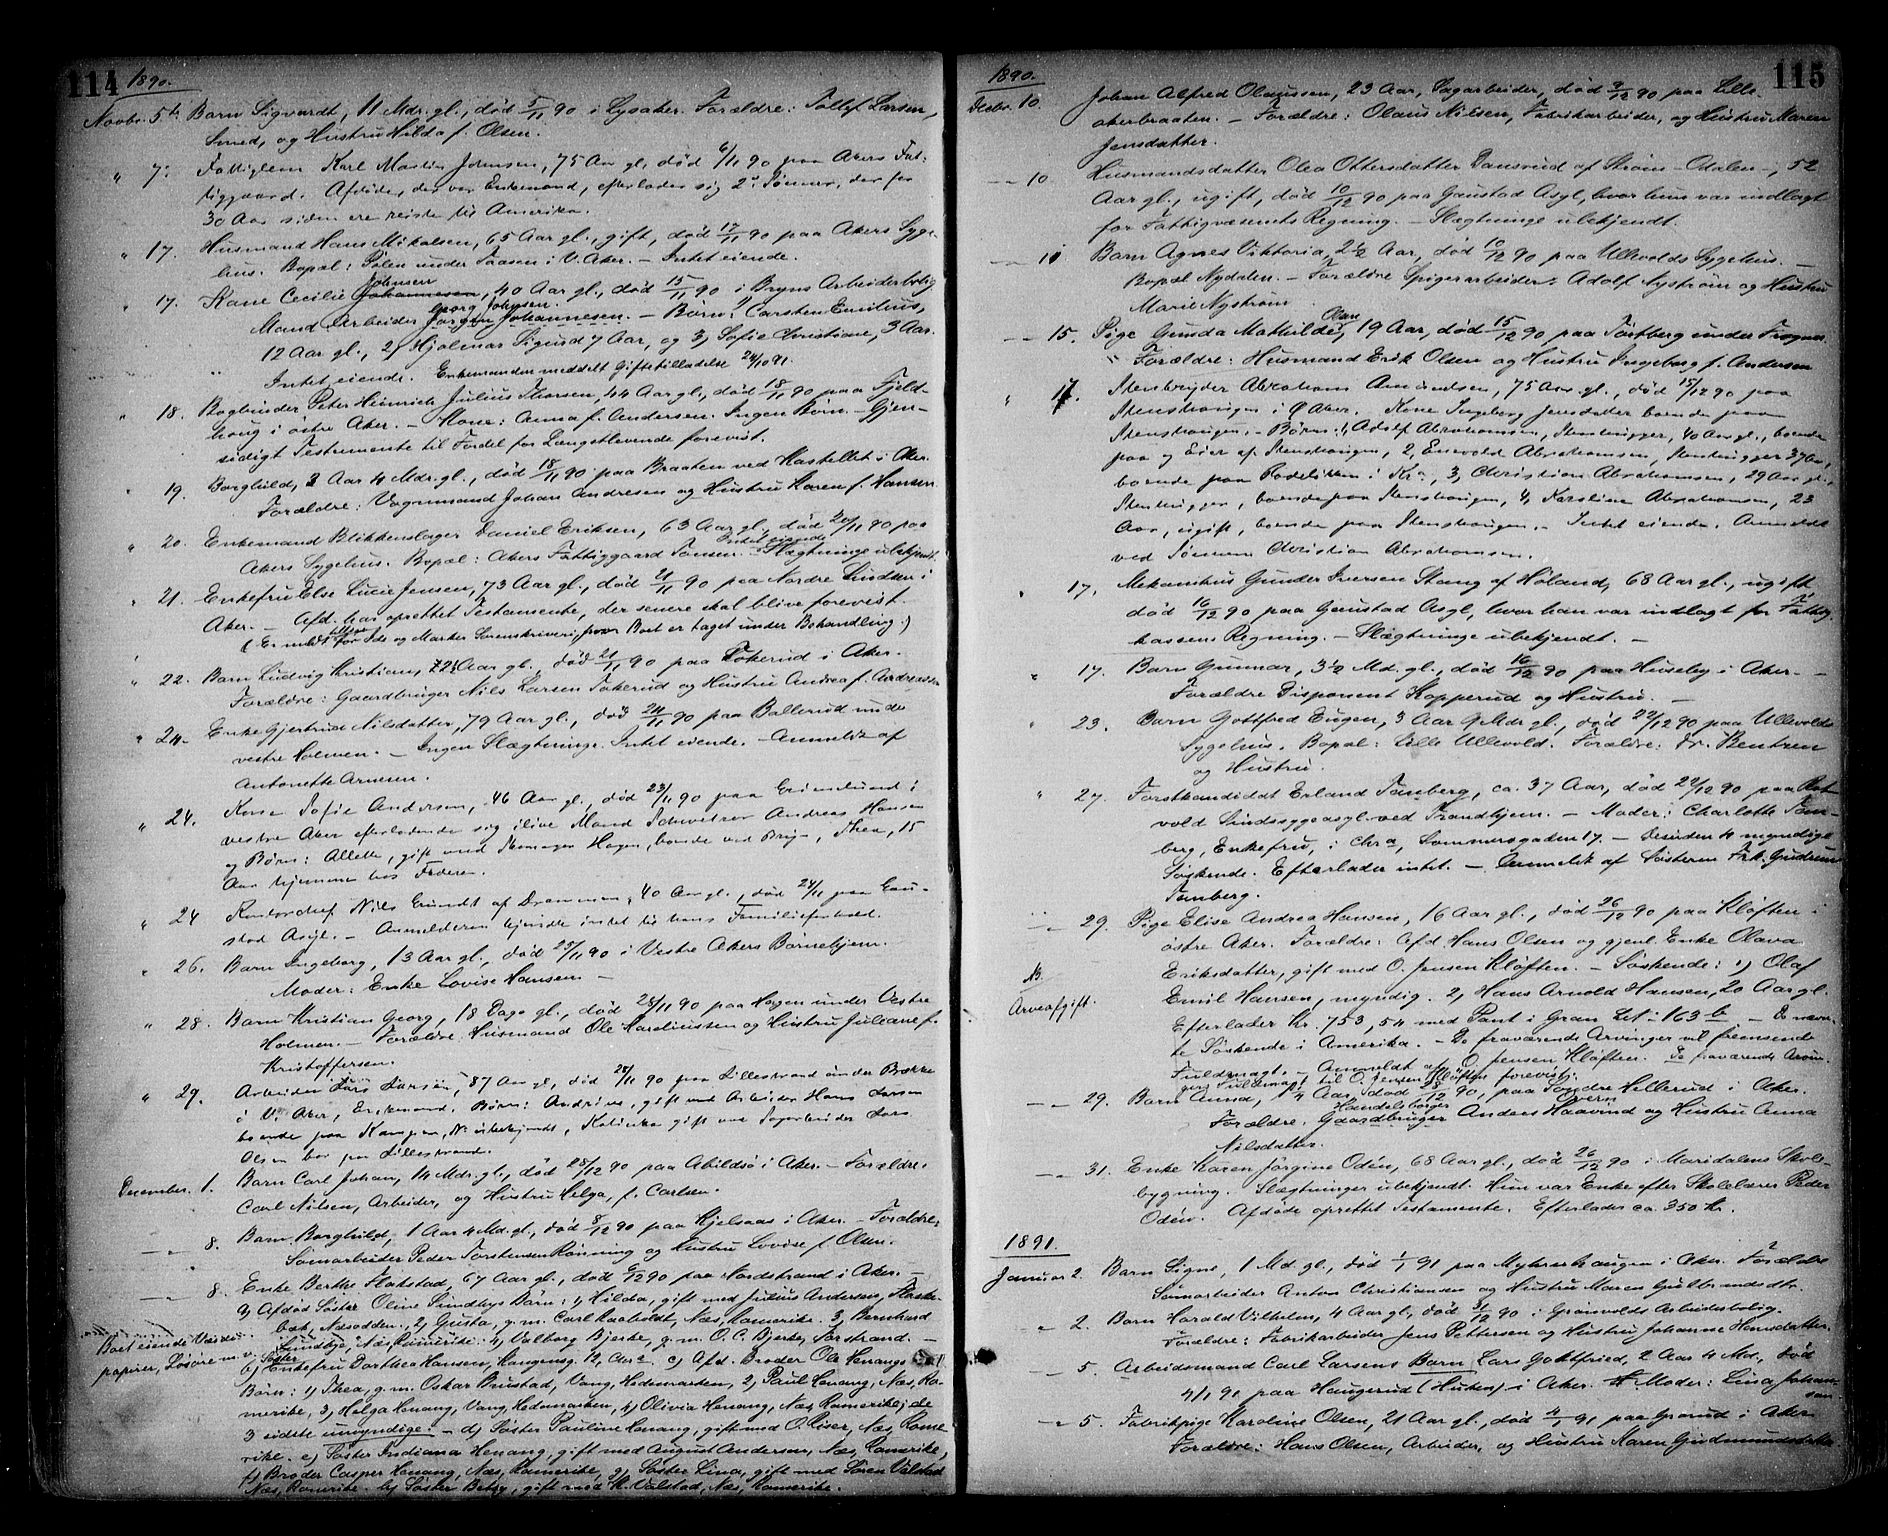 114 1890.
Novbr. 5te Barn Sigvardt, 11 Mdr. gl., død 5/11 90 i Lysaker. Forældre: Tollef Larsen,
Smed, og Hustru Hilda f. Olsen.
" 7. Fattiglem Karl Martin Johnsen, 75 Aar gl., død 6/11 90 paa Akers Fat-
tiggaard. Afdøde, der var Enkemand, efterlader sig 2 Sønner, der for
30 Aar siden ere reiste til Amerika.
" 17. Husmand Hans Mikalsen, 65 Aar gl., gift, død 17/11 90 paa Akers Syge-
hus. Bopæl: Pølen under Taasen i V. Aker. – Intet eiende.
" 17. Kone Cecilie Johannesen Johnsen, 40 Aar gl., død 15/11 90 i Bryns Arbeiderbolig
Mand Arbeider Jørgen Johannesen Georg Johnsen. – Børn: 1, Carsten Emilius,
12 Aar gl., 2, Hjalmar Sigurd 7 Aar, og 3, Sofie Christiane, 3 Aar.
Intet eiende. Enkemanden meddelt Giftetilladelse 24/10 91.
" 18. Bogbinder Peter Heinrich Julius Thorsen, 44 Aar gl., død 18/11 90 paa Fjeld-
houg i østre Aker. – Kone: Anna f. Andersen. Ingen Børn. – Gjen-
sidigt Testamente til Fordel for Længstlevende forevist.
" 19. Borghild, 3 Aar 4 Mdr. gl., død 18/11 90 paa Braaten ved Kastellet i Aker.
Forældre: Vognmand Johan Andresen og Hustru Karen f. Hansen
" 20. Enkemand Blikkenslager Daniel Eriksen, 63 Aar gl., død 20/11 90 paa
Akers Sygehus. Bopæl: Akers Fattiggaard Tonsen. Intet eiende. Slægtninge ubekjendt.
" 21. Enkefru Else Lucie Jensen, 73 Aar gl., død 21/11 90 paa Nordre Lindern i
Aker. – Afd. har oprettet Testamente, der senere skal blive forevist.
(Er meldt for Ide og Marker Sorenskriveri, hvor Boet er taget under Behandling.)
" 22. Barn Ludvig Kristian, Aar gl., død 21/11 90 paa Tokerud i Aker.
Forældre: Gaardbruger Nils Larsen Tokerud og Hustru Andrea f. Andreassen
" 24. Enke Gjertrud Nilsdatter, 79 Aar gl., død 24/11 90 paa Ballerud under
vestre Holmen. – Ingen Slægtninge. Intet eiende. – Anmeldt af
Antonette Arnesen.
" 24. Kone Sofie Andersen, 46 Aar gl., død 23/11 90 paa Grimelund i
vestre Aker efterladende sig ilive Mand Andreas Hansen
og Børn: Allette, gift med Hagen, boende ved Bryn, Thea, 15
Aar hjemme hos Faderen.
" 24 Kontorchef Nils Grundt af Drammen, 40 Aar gl., død 24/11 paa Gau-
stad Asyl. – Anmelderen kjendte intet til hans Familieforhold.
" 26. Barn Ingeborg, 13 Aar gl., død 25/11 90 i Vestre Akers Børnehjem.
Moder: Enke Lovise Hansen –
" 28. Barn Kristian Georg, 18 Dage gl., død 28/11 90 paa Hagen under Vestre
Holmen. – Forældre Husmand Ole Karelinssen og Hustru Juliane f.
Kristoffersen.
" 29. Arbeider Lars Larsen, 87 Aar gl, død 28/11 90 paa Lillestrand under Bække
i V. Aker, Enkemand. Børn: Andrine, gift med Arbeider Hans Larsen
boende paa Kampen, No ubekjendt, Kalinka gift med Sagarbeider Lars
Olsen bor paa Lillestrand.
December. 1. Barn Carl Johan, 14 Mdr. gl., død 28/12 90 paa Abildsø i Aker. – Forældre:
Carl Nilsen, Arbeider, og Hustru Helga, f. Carlsen.
–"– 8. Barn Borghild, 1 Aar 4 Md. gl., død 8/12 90 paa Kjelsaas i Aker. – Forældre,
Sømarbeider Peder Torstensen Rønning og Hustru Lovise f. Olsen.
–"– 8. Enke Berthe Flatstad, 67 Aar gl., død 6/12 90 paa Nordstrand i Aker. –
a) Afdød Søster Oline Sundbys Børn: 1, Hilda, gift med Julius Andersen, Flaske-
bæk, Næsodden. 2, Gusta, g. m. Carl Kaaholdt, Næs, Romerike. 3, Bernhard
Boet eiende Værdi-
papirer, Løsøre m. v.
Sundbye, Næs Romerike. 4, Valborg Bjerke, g. m. O. C. Bjerke, Færstrand. –
b) Søster Enkefru Dorthea Hansen, Kongensg. 12, Chr.a. c) Afd. Broder Ole Henangs
Børn: 1, Thea, g. m. Oskar Brustad, Vang, Hedemarken, 2, Paul Henang, Næs, Ro-
merike, 3, Helga Henang, Vang Hedemarken, 4, Olivia Henang, Næs, Romerike; de
3 sidste umyndige. – d) Søster Pauline Henang, gift med O. Riser, Næs, Rome-
rike. e) Søster Indiana Henang, gift med August Andersen, Næs, Romerike,
f) Broder Casper Henang, Næs, Romerike, g) Søster Lina, gift med Søren Valstad
Næs, Romerike. h) Søster Betzy, gift med K. Valstad, Næs, Romerike.
1890. 115
Decbr. 10. Johan Alfred Olaussen, 23 Aar, Sagarbeider, død 9/12 90 paa Lille-
akerbraaten. – Forældre: Olaus Nilsen, Fabrikarbeider, og Hustru Maren
Jensdatter.
–"– 10 Husmandsdatter Olea Ottersdatter Dansrud af Strøm – Odalen –, 52
Aar gl., ugift, død 10/12 90 paa Gaustad Asyl, hvor hun var indlagt
for Fattigvæsenets Regning. – Slægtninge ubekjendt.
–"– 11 Barn Agnes Viktoria, 2½ Aar, død 10/12 90 paa Ullevolds Sygehus. –
Bopæl Nydalen. – Forældre Spigerarbeider Adolf Nystrøm og Hustru
Marie Nystrøm.
–"– 15. Pige Gunda Mathilde Olsen, 19 Aar, død 15/12 90 paa Tørtberg under Frogner
Forældre: Husmand Erik Olsen og Hustru Ingeborg f. Andersen
" 17. Stenbryder Abraham Amundsen, 75 Aar gl., død 15/12 90 paa
Stenshaugen i Ø. Aker. Kone Ingeborg Jensdatter boende paa
Stenshaugen. – Børn: 1, Adolf Abrahamsen, Stenhugger, 40 Aar gl., boende
paa og Eier af Stenshaugen, 2, Enevold Abrahamsen, Stenhugger 37 Aar,
boende paa Rodeløkken i Kra, 3, Christian Abrahamsen, 29 Aar gl.,
Stenhugger, boende paa Stenshaugen, 4, Karoline Abrahamsen, 23
Aar, ugift, boende paa Stenshaugen. – Intet eiende. Anmeldt
ved Sønnen Christian Abrahamsen.
" 17. Mekanikus Gunder Iversen Stang af Høland, 68 Aar gl., ugift,
død 16/12 90 paa Gaustad Asyl, hvor han var indlagt for Fattig-
kassens Regning. – Slægtninge ubekjendt. –
" 17. Barn Gunnar, 3½ Md. gl., død 16/12 90 paa Huseby i Aker. –
Forældre Disponent Kopperud og Hustru. –
" 23. Barn Gottfred Eugen, 3 Aar 9 Mdr gl., død 22/12 90 paa Ullevolds
Sygehus. Bopæl: Lille Ullevold. Forældre: Fr. Bentzen
og Hustru.
" 27. Forstkandidat Erland Tanberg, ca. 37 Aar, død 22/12 90 paa Rot-
vold Sindssygeasyl ved Trondhjem. – Moder: Charlotte Tan-
berg, Enkefru, i Chra, Sommersgaden 17. – Desuden 4 myndige
Søskende. Efterlader intet. – Anmeldt af Søsteren Frk. Gudrun
Tanberg.
–"– 29. Pige Elise Andrea Hansen, 16 Aar gl., død 26/12 90 paa Kløften i
østre Aker. Forældre: Afd Hans Olsen og gjenl. Enke Olava
N.
Arveafgift.
Eriksdatter, gift med O. Jensen Kløften. – Søskende: 1) Olaf
Emil Hansen, myndig. 2, Hans Arnold Hansen, 20 Aar gl.
Efterlader Kr. 753,54 med Pant i Gran Lt: 163 b – De nævn-
te Søskende i Amerika. – De fraværende Arvinger vil fremsende
Fuldmagt. – Anmeldt af O. Jensen Kløften. De fraværende Arvin-
gers Fuldmagt til O. Jensen Kløften forevist.
–"– 29. Barn Anna, ¼ Aar, død 28/12 90, paa Søndre Hellerud i Aker.
Forældre, Gaardbruger Handelsborger Anders Haavind og Hustru Anna
Nilsdatter.
–"– 31. Enke Karen Jørgine Odén, 68 Aar gl., død 26/12 90 i Maridalens Skole-
bygning. Slægtninger ubekjendt. Hun var Enke efter Skolelærer Peder
Odén. Afdøde oprettet Testamente. Efterlader ca. 350 Kr.
1891.
Januar 2. Barn Signe, 1 Md. gl., død 1/1 91 paa Myhrerhaugen i Aker. Forældre
Sømarbeider Anton Christiansen og Hustru Maren Gulbrandsdtr.
" 2. Barn Harald Vilhelm, 4 Aar gl., død 31/12 90 i Grønvolds Arbeiderbolig.
Forældre: Fabrikarbeider Jens Pettersen og Hustru Johanne Hansdatter.
–"– 5. Arbeidsmand Carl Larsens Barn Lars Gottfried, 2 Aar 4 Md., død
4/1 91 paa Haugerud (Huken) i Aker. Moder: Lina Johan-
sen
–"– 5. Fabrikpige Karoline Olsen, 21 Aar gl., død 4/1 91 paa Grorud i Aker
Forældre: Hans Olsen, Arbeider, og Hustru Karen Gudmundsdatter